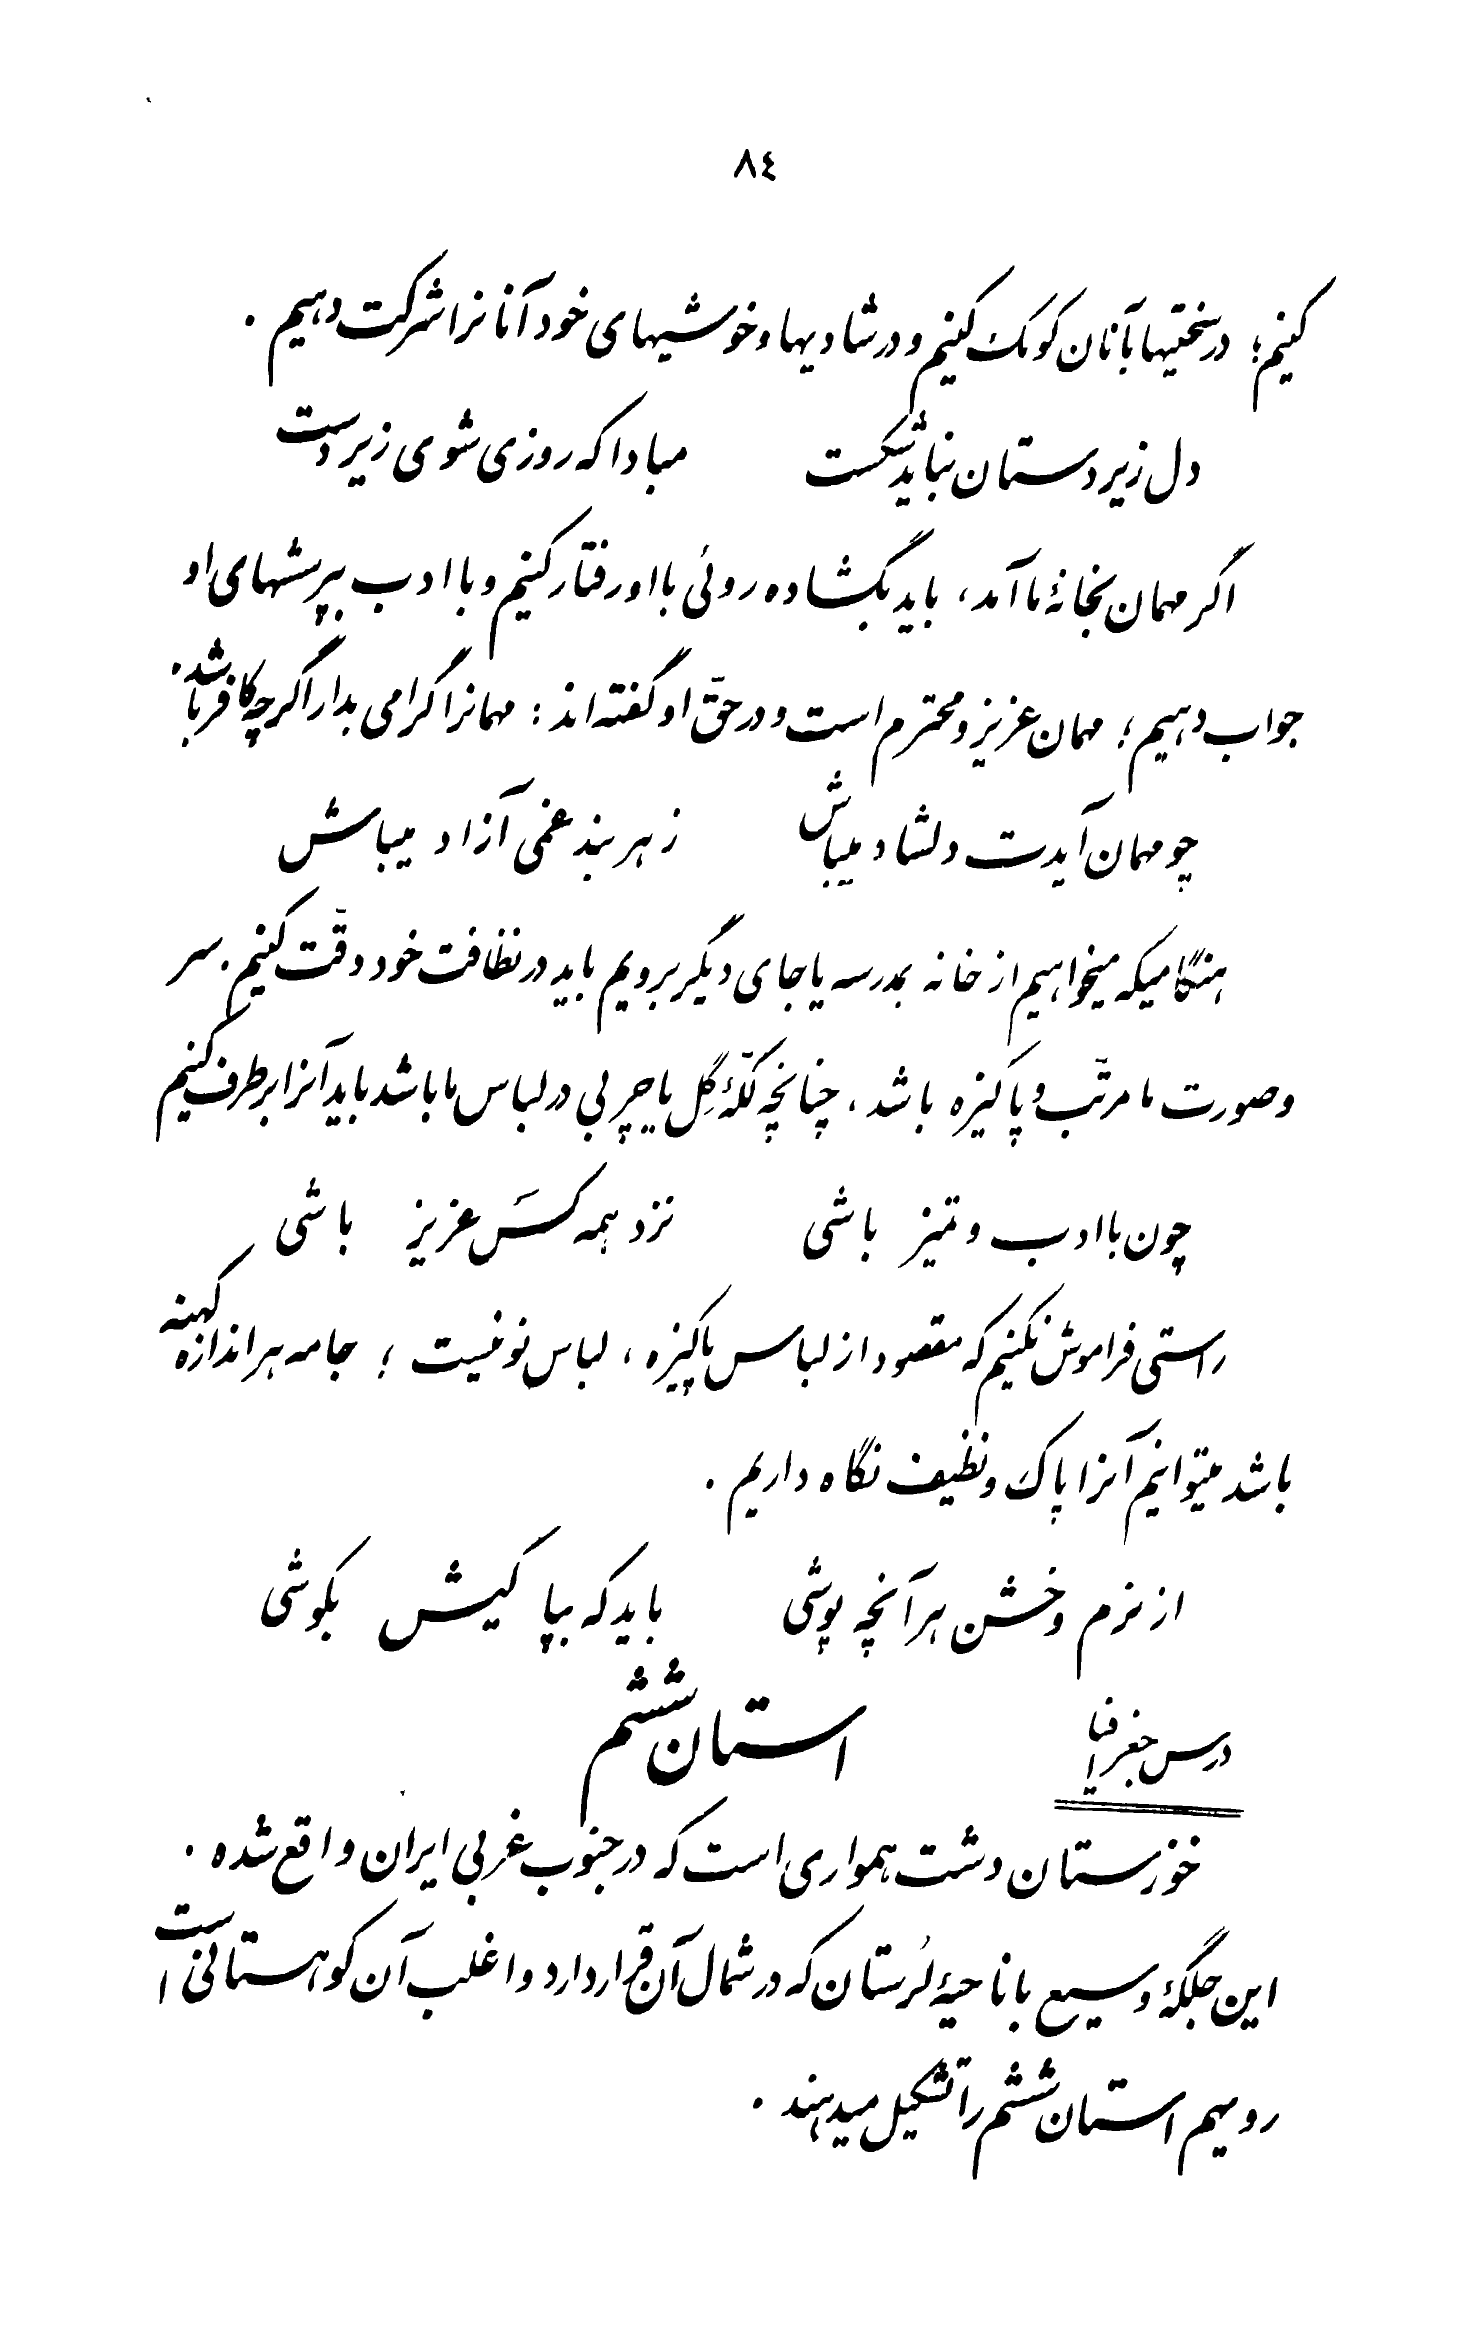 ٨٤
کنیم؛ در سختیها بآنان کومک کنیم و در شادیها و خوشیهای خود آنانرا شرکت دهیم .
دل زیردستان نباید شکست مبادا که روزی شوی زیردست
اگر مهمان بخانهٔ ما آمد، باید بگشاده روئی با او رفتار کنیم و با ادب بپرسشهای او
جواب دهیم؛ مهمان عزیز و محترم است و در حقّ او گفته‌اند : مهمانرا گرامی بدار اگرچه کافر باشد .
چو مهمان آیدت دلشاد میباش ز هر بند غمی آزاد میباش
هنگامیکه میخواهیم از خانه بمدرسه یا جای دیگر برویم باید در نظافت خود دقّت کنیم . سر
و صورت ما مرتّب و پاکیزه باشد، چنانچه لکّهٔ گِل یا چربی در لباس ما باشد باید آنرا برطرف کنیم
چون با ادب و تمیز باشی نزد همه کَس عزیز باشی
راستی فراموش نکنیم که مقصود از لباس پاکیزه، لباس نو نیست ؛ جامه هر اندازه کهنه
باشد میتوانیم آنرا پاک و نظیف نگاه داریم .
از نرم و خشن هر آنچه پوشی باید که بپاکیش بکوشی
درس جغرافیا
استان ششم
خوزستان دشت همواری است که در جنوب غربی ایران واقع شده .
این جلگهٔ وسیع با ناحیهٔ لُرستان که در شمال آن قرار دارد و اغلب آن کوهستانی است
رویهم استان ششم را تشکیل میدهند .